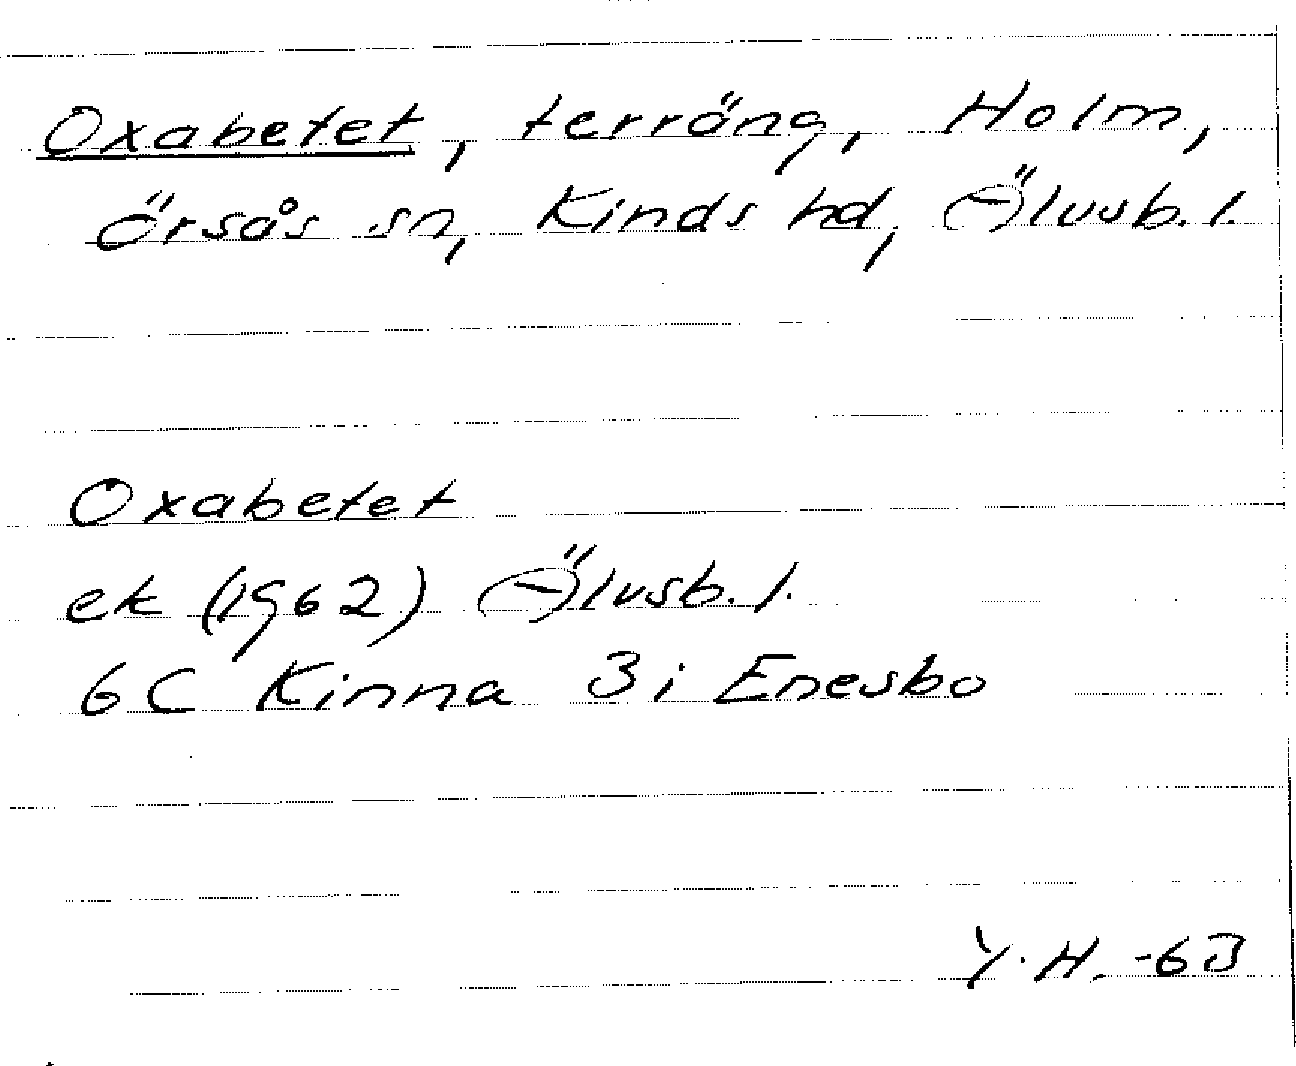 Oxabetet, terräng, Holm,
Örsås sn, Kinds hd, Älvsb. l.
Oxabetet
ek (1962) Älvsb. l.
6C Kinna 3i Enesbo
Y. H. -63